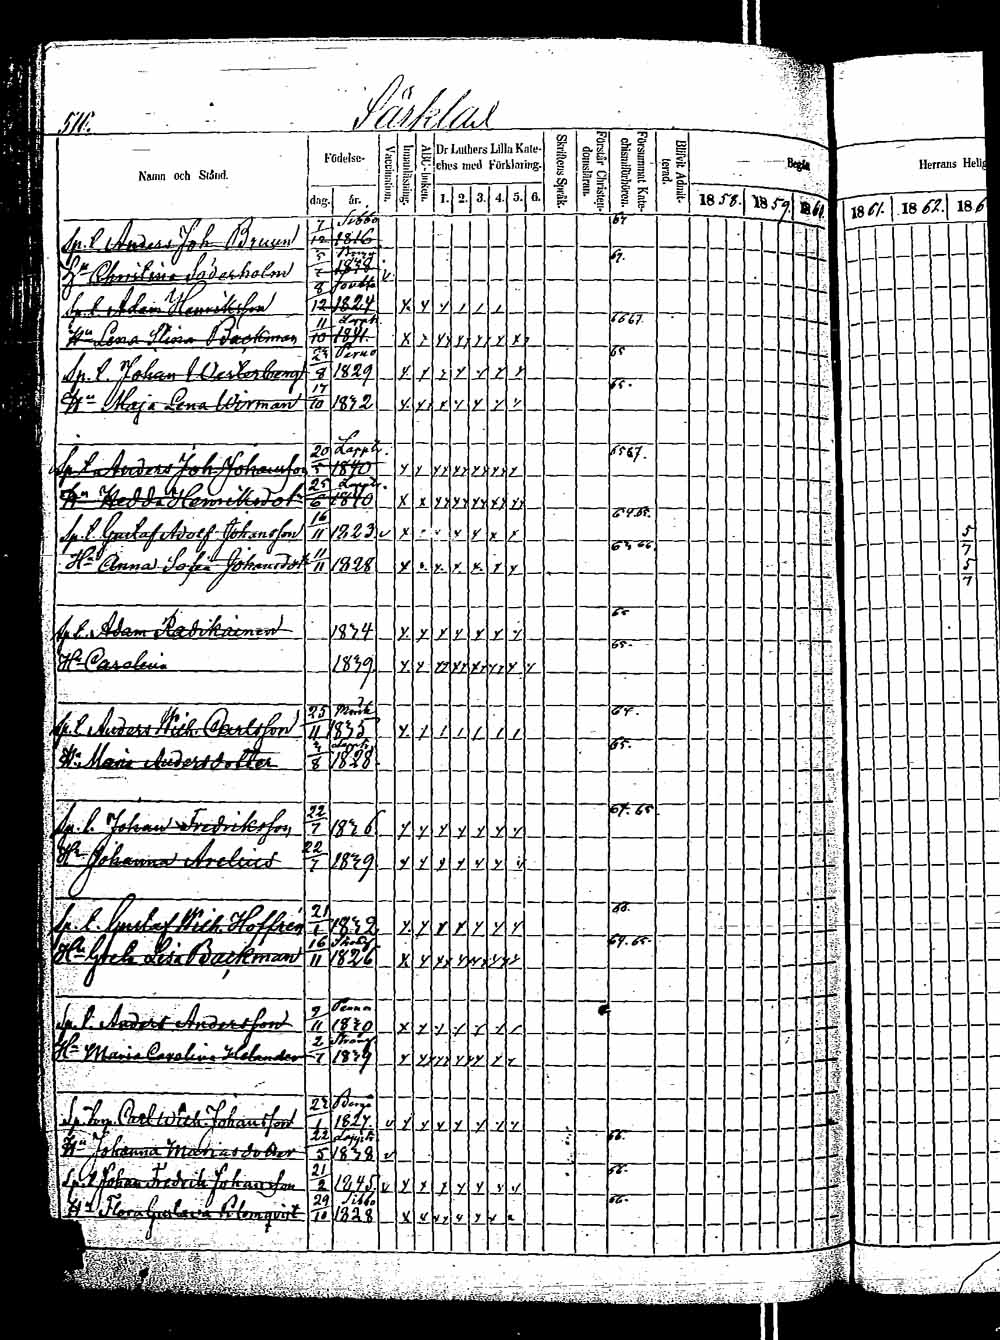 516.
Särklax
Namn och Stånd.
Födelse-
dag. år.
Vaccination.
Innanläsning.
ABC-boken.
Dr Luthers Lilla Kate-
ches med Förklaring.
1. 2. 3. 4. 5. 6.
Skriftens Språk.
Förstår Christen-
domsläran.
Försummat Kate-
chismiförhören.
Blifvit Admit-
terad.
Begå
Herrans Helig
1858. 1859. 1860. 1861. 1862. 186
Sp. l. Anders Joh Bruun 7/12 Sibbo 1816 67
Hu Christina Söderholm 5/7 Borgå 1818 v 67.
Sp. l. Adam Henriksson 8/12 1824
Hu Lena Stina Backman 11/10 1831. 6667.
Sp. l. Johan Westerberg 23/8 Perno 1829 65
Hu Maja Lena Wirman 17/10 1832 65.
Sp. l. Anders Joh Johansson 20/5 Lappt. 1840 6567.
Hu Hedda Henriksdotr 25/6 Lappt. 1840
Sp. l. Gustaf Adolf Johansson 16/11 1823 v 64.65. 5 7
Hu Anna Sofia Johansdotr 11/11 1828 63,66. 5 7
Sp. l. Adam Radikainen 1834 65
Hu Carolina 1839 65.
Sp. l. Anders Wilh. Carlsson 25/11 1835 64.
Hu Maria Andersdotter 1828 65.
Sp. l. Johan Fredriksson 22/7 1836 64. 65
Hu Johanna Arelius 22/7 1839
Sp. l. Gustaf Wilh. Hoffrén 21/1 1832
Hu Greta Lisa Backman 16/11 1826 64.65.
Sp. l. Anders Andersson 9/11 1830
Hu Maria Carolina Helander 2/7 1839
Carl Wilh. Johansson 23/1 Borgå 1827 v
Hu Johanna Mariasdotter 22/5 1838 v 66.
Sp. l. Johan Fredrik Johansson 21/2 1845 v 66.
Hu Flora Gustava Blomqvist 29/10 Sibbo 1828 66.